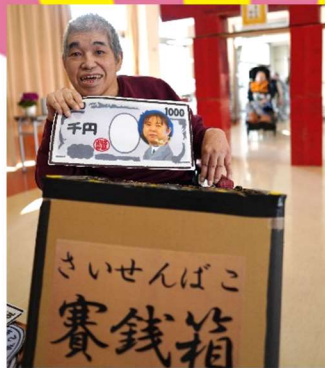 1000
千円
さいせんばこ
賽銭箱